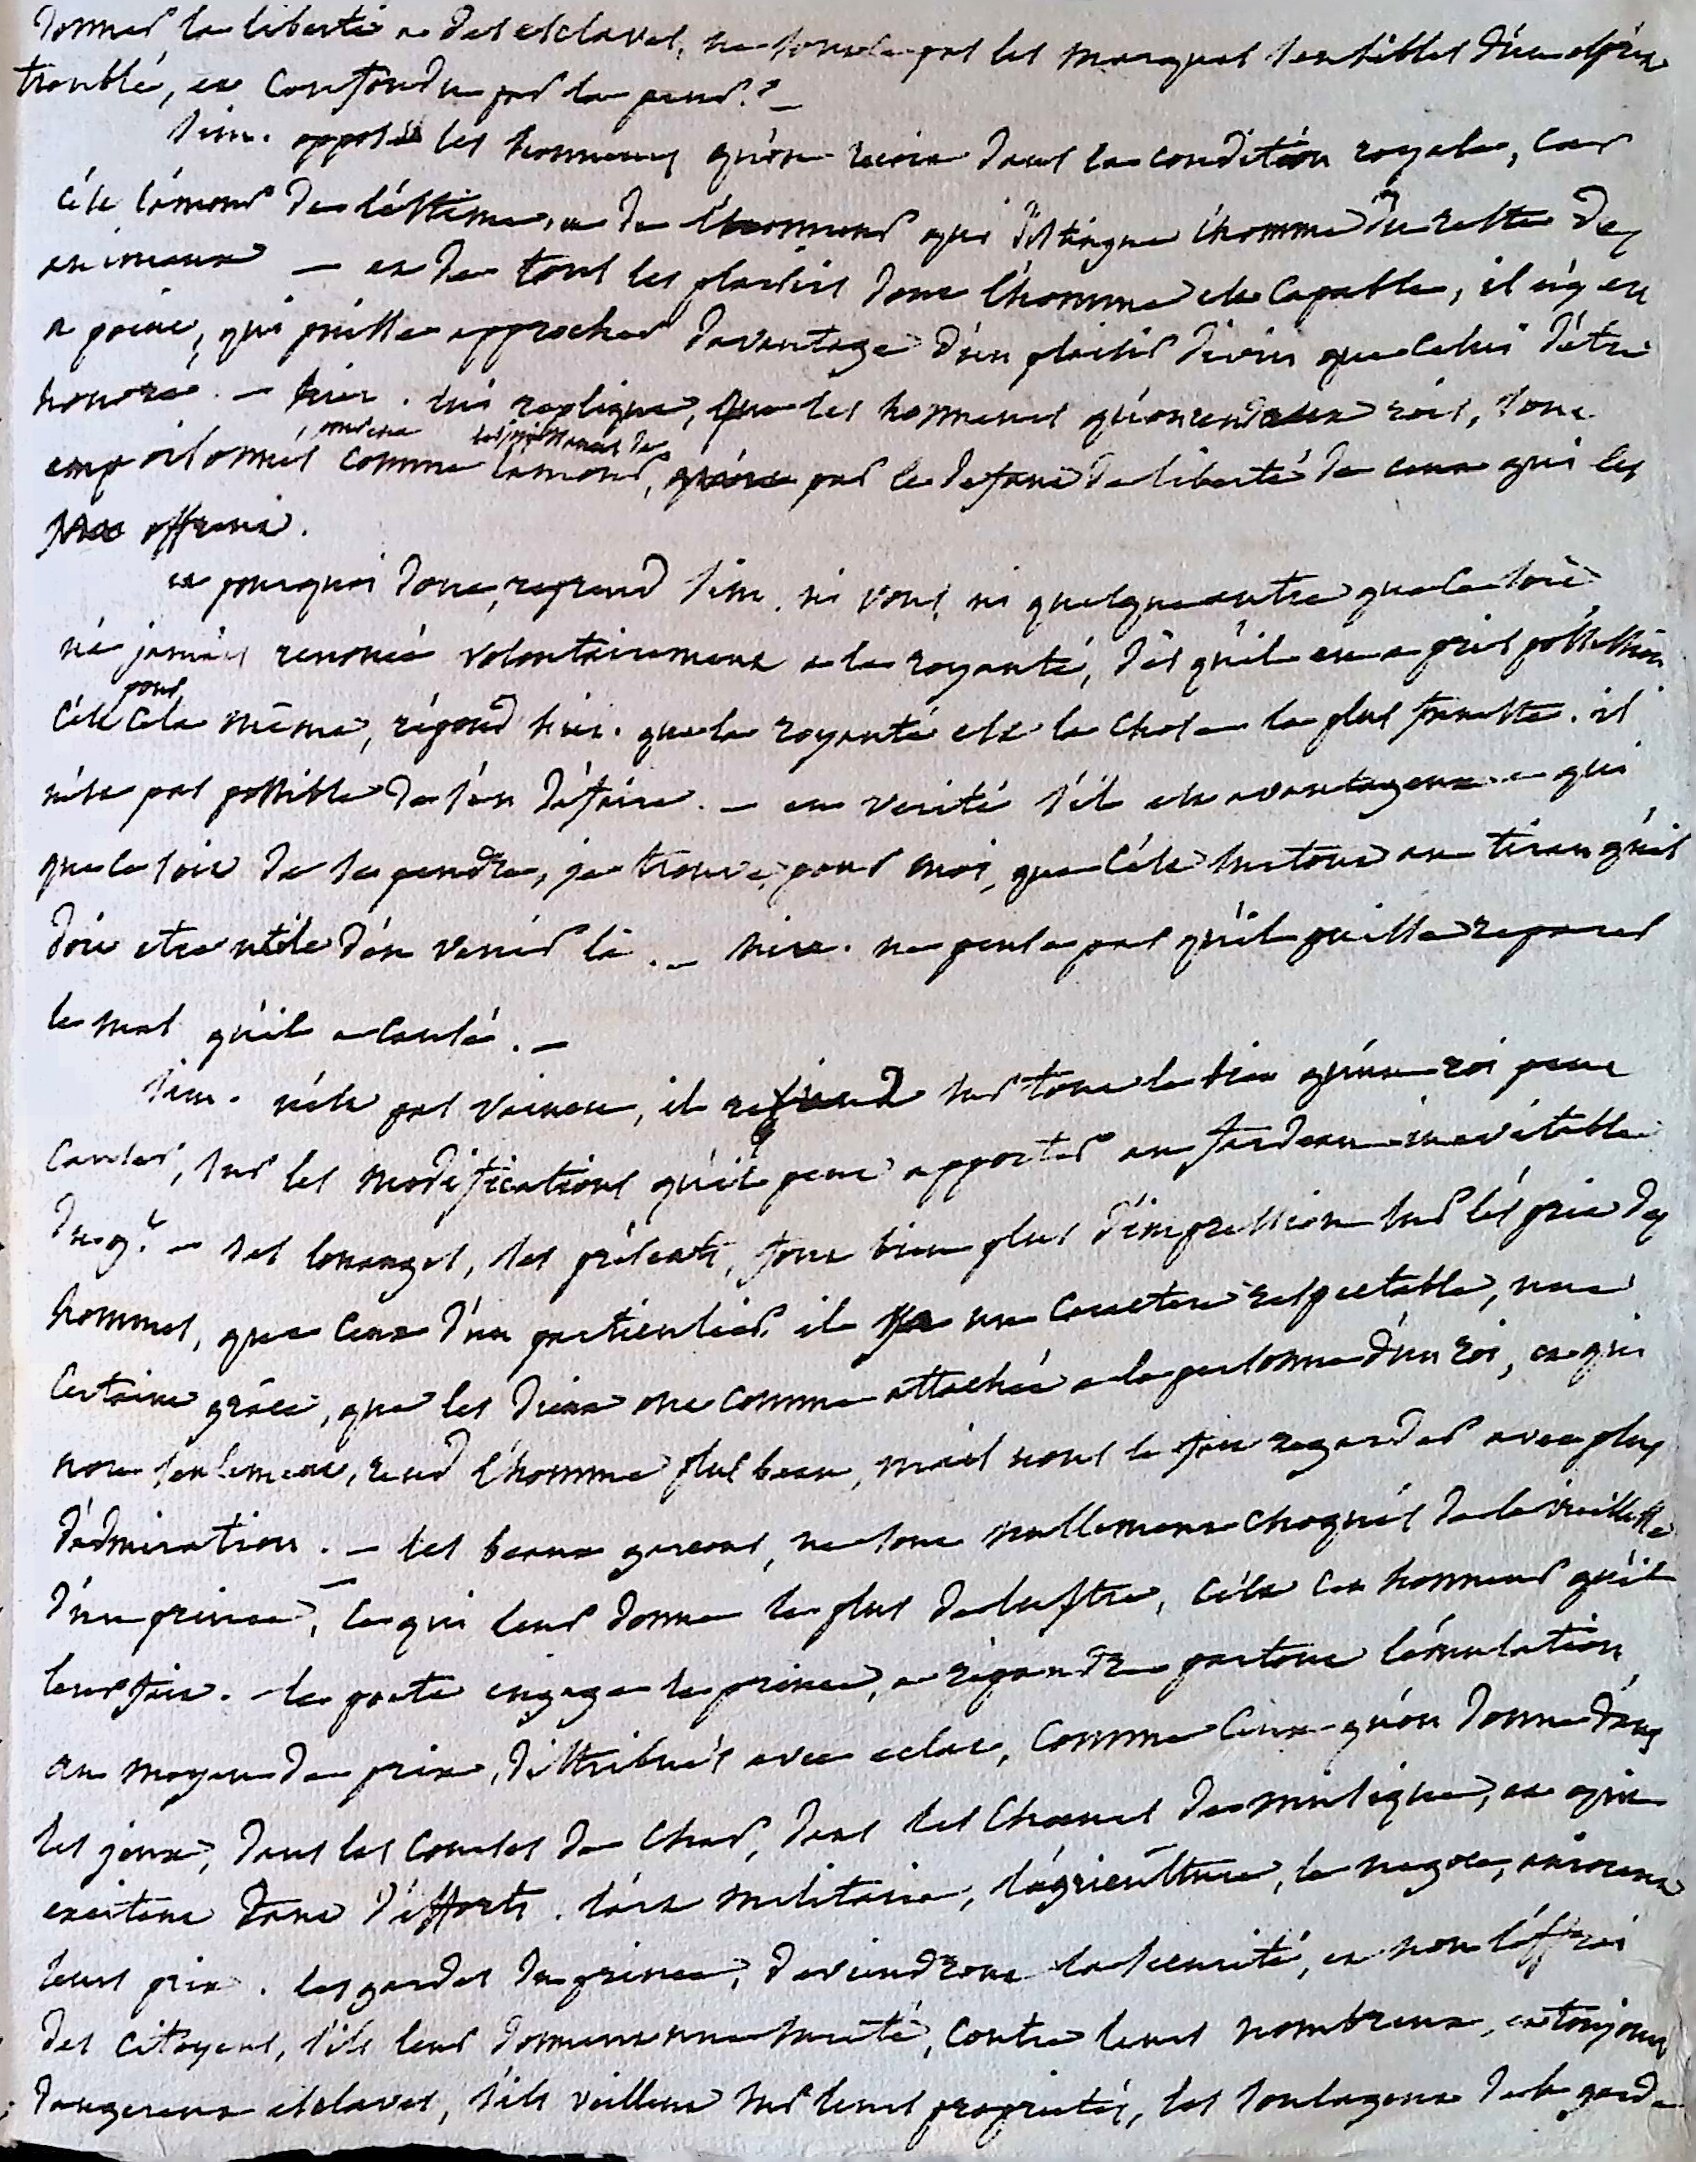 donner la liberté a des esclaves, ne sont ce pas les marques sensibles d'un esprit
troublé, et confondu par la peur ? —
Sim. oppose les honneurs qu'on reçoit dans la condition royale, car
c'est l'amour de l'estime, et de l'honneur qui distingue l'homme du reste des
animaux — et de tous les plaisirs dont l'homme est capable, il n'y en
a point, qui puisse approcher davantage d'un plaisir divin que celui d'être
honoré. — hier. lui replique, que les honneurs qu'on rend aux rois, sont
empoisonnés comme l'amour, par le defaut de liberté de ceux qui les
offrent.
et pourquoi donc, reprend Sim. ni vous, ni quelque autre que ce soit
n'a jamais renoncé volontairement a la royauté, dès qu'il en a pris possession
c'est pour cela même, répond hier. que la royauté est la chose la plus funeste. il
n'est pas possible de s'en défaire. — en verité s'il est avantageux a qui
que ce soit de se pendre, je trouve, pour moi, que c'est surtout au tiran qu'il
doit etre utile d'en venir là. — hier. ne pense pas qu'il puisse reparer
le mal qu'il a causé. —
Sim. n'est pas vaincu, il sur tout le bien qu'un roi peut
causer, sur les modifications qu'il peut apporter au fardeau inevitable
du g.t — ses louanges, ses présents, font bien plus d'impression sur l'esprit des
hommes, que ceux d'un particulier. il y a un caractere respectable, une
certaine grâce, que les dieux ont comme attachée a la personne d'un roi, et qui
non seulement, rend l'homme plus beau, mais nous le fait regarder avec plus
d'admiration. — les beaux garçons, ne sont nullement choqués de la vieillesse
d'un prince, ce qui leur donne le plus de lustre, c'est cet honneur qu'il
leur fait. — le poete engage le prince, a répandre partout l'émulation
au moyen de prix, distribués avec eclat, comme ceux qu'on donne dans
les jeux, dans les courses de char, dans les choeurs de musique, et qui
excitent tant d'efforts. l'art militaire, l'agriculture, le negoce, auront
leurs prix. les gardes du prince, deviendront la securité, et non l'effroi
des citoyens, s'ils leur donnent une sureté, contre leurs nombreux, et toujours
dangereux esclaves, s'ils veillent sur leurs proprietés, les soulagent de la garde